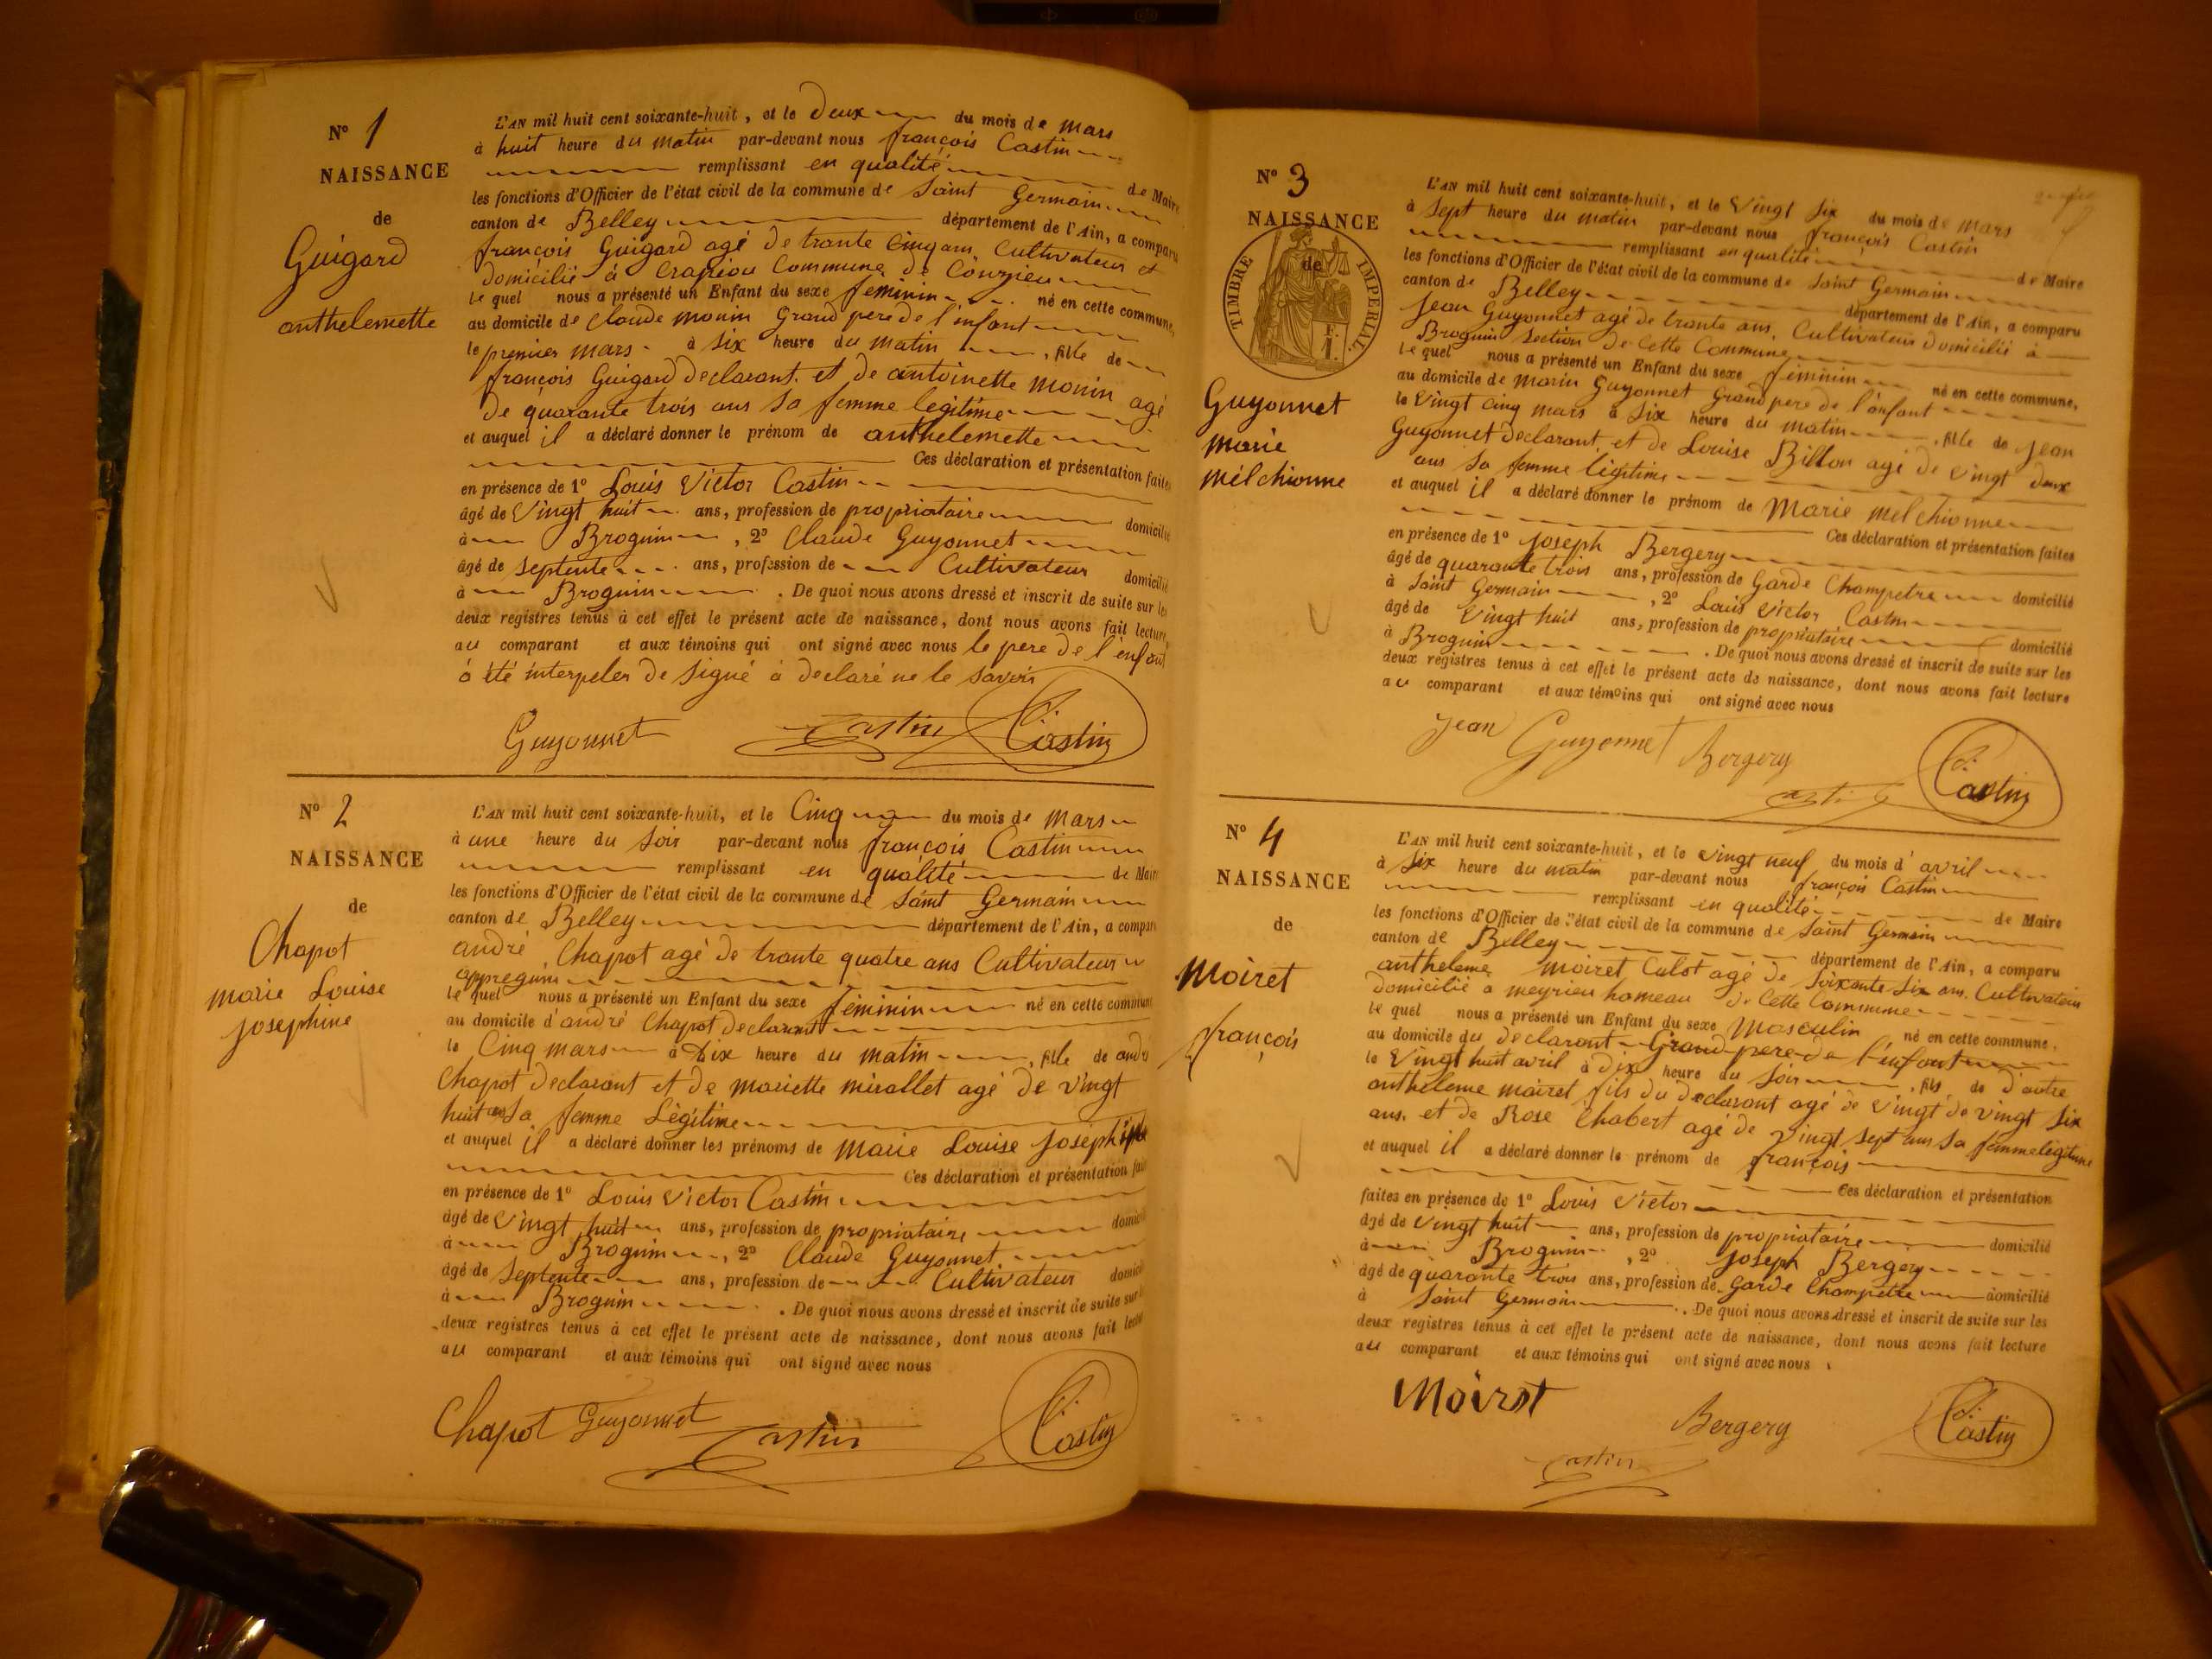 N° 1
NAISSANCE
de
Guigard
anthelemette
L'AN mil huit cent soixante-huit, et le Deux du mois de mars
à huit heure du matin par-devant nous françois Castin
remplissant en qualité de Maire
les fonctions d'Officier de l'état civil de la commune de Saint Germain
canton de Belley département de l'Ain, a comparu
françois Guigard agé de trante cinq ans, Cultivateur et
domicilié à Crapéou Commune de Conzieu
le quel nous a présenté un Enfant du sexe feminin né en cette commune,
au domicile de Claude monin Grand pere de l'enfant
le premier mars à Six heure du matin, fille de
françois Guigard declarant et de antoinette monin agé
De quarante trois ans Sa femme legitime
et auquel il a déclaré donner le prénom de anthelemette
Ces déclaration et présentation faites
en présence de 1° Louis Victor Castin
âgé de Vingt huit ans, profession de propriataire domicilié
à Brognin, 2° Claude Guyonnet
âgé de Septente ans, profession de Cultivateur domicilié
à Brognin. De quoi nous avons dressé et inscrit de suite sur les
deux registres tenus à cet effet le présent acte de naissance, dont nous avons fait lecture
au comparant et aux témoins qui ont signé avec nous le pere De l'enfant
à été interpeler De Signé à declaré ne le Savoir
Guyonnet Castin Castin
N° 2
NAISSANCE
de
Chapot
marie Louise
Josephine
L'AN mil huit cent soixante-huit, et le Cinq du mois de mars
à une heure du Soir par-devant nous françois Castin
remplissant en qualité de Maire
les fonctions d'Officier de l'état civil de la commune de Saint Germain
canton de Belley département de l'Ain, a comparu
andré Chapot agé de trante quatre ans Cultivateur
appregnin
le quel nous a présenté un Enfant du sexe féminin né en cette commune
au domicile d'andré Chapot declarant
le Cinq mars à Dix heure du matin, fille de andré
Chapot declarant et de mariette mirallet agé de vingt
huit ans Sa femme Légitime
et auquel il a déclaré donner les prénoms de Marie Louise Joséphine
Ces déclaration et présentation faites
en présence de 1° Louis Victor Castin
âgé de Vingt huit ans, profession de propriataire domicilié
à Brognin, 2° Claude Guyonnet
âgé de Septente ans, profession de Cultivateur domicilié
à Brognin. De quoi nous avons dressé et inscrit de suite sur les
deux registres tenus à cet effet le présent acte de naissance, dont nous avons fait lecture
au comparant et aux témoins qui ont signé avec nous
Chapot Guyonnet Castin Castin
N° 3
NAISSANCE
de
TIMBRE IMPERIAL
1 F.
Guyonnet
marie
mélchionne
L'AN mil huit cent soixante-huit, et le Vingt Six du mois de mars
à Sept heure du matin par-devant nous françois Castin
remplissant en qualité de Maire
les fonctions d'Officier de l'état civil de la commune de Saint Germain
canton de Belley département de l'Ain, a comparu
Jean Guyonnet agé de trante ans, Cultivateur domicilié à
Brognin Section De Cette Commune
le quel nous a présenté un Enfant du sexe féminin né en cette commune,
au domicile de marin Guyonnet Grand pere de l'enfant
le Vingt Cinq mars à Six heure du matin, fille de Jean
Guyonnet declarant et de Louise Billon agé de vingt deux
ans Sa femme légitime
et auquel il a déclaré donner le prénom de Marie melchionne
Ces déclaration et présentation faites
en présence de 1° Joseph Bergery
âgé de quarante trois ans, profession de Garde Champetre domicilié
à Saint Germain, 2° Louis Victor Castin
âgé de Vingt huit ans, profession de propriataire domicilié
à Brognin. De quoi nous avons dressé et inscrit de suite sur les
deux registres tenus à cet effet le présent acte de naissance, dont nous avons fait lecture
au comparant et aux témoins qui ont signé avec nous
Jean Guyonnet Bergery
Castin Castin
N° 4
NAISSANCE
de
Moiret
françois
L'AN mil huit cent soixante-huit, et le Vingt neuf du mois d'avril
à Six heure du matin par-devant nous françois Castin
remplissant en qualité de Maire
les fonctions d'Officier de l'état civil de la commune de Saint Germain
canton de Belley département de l'Ain, a comparu
anthelme moiret Culot agé de Soixante Six ans, Cultivateur
domicilié a meyrieu hameau de Cette Commune
le quel nous a présenté un Enfant du sexe Masculin né en cette commune,
au domicile du declarant Grand pere de l'enfant
le Vingt huit avril à dix heure du Soir, fils de d'autre
anthelme moiret fils du declarant agé de vingt de vingt Six
ans. et de Rose Chabert agé de Vingt Sept ans Sa femme legitime
et auquel il a déclaré donner le prénom de françois
Ces déclaration et présentation
faites en présence de 1° Louis Victor
âgé de Vingt huit ans, profession de propriataire domicilié
à Brognin, 2° Joseph Bergery
âgé de quarante trois ans, profession de Garde Champetre domicilié
à Saint Germain. De quoi nous avons dressé et inscrit de suite sur les
deux registres tenus à cet effet le présent acte de naissance, dont nous avons fait lecture
au comparant et aux témoins qui ont signé avec nous
Moiret Bergery Castin
Castin